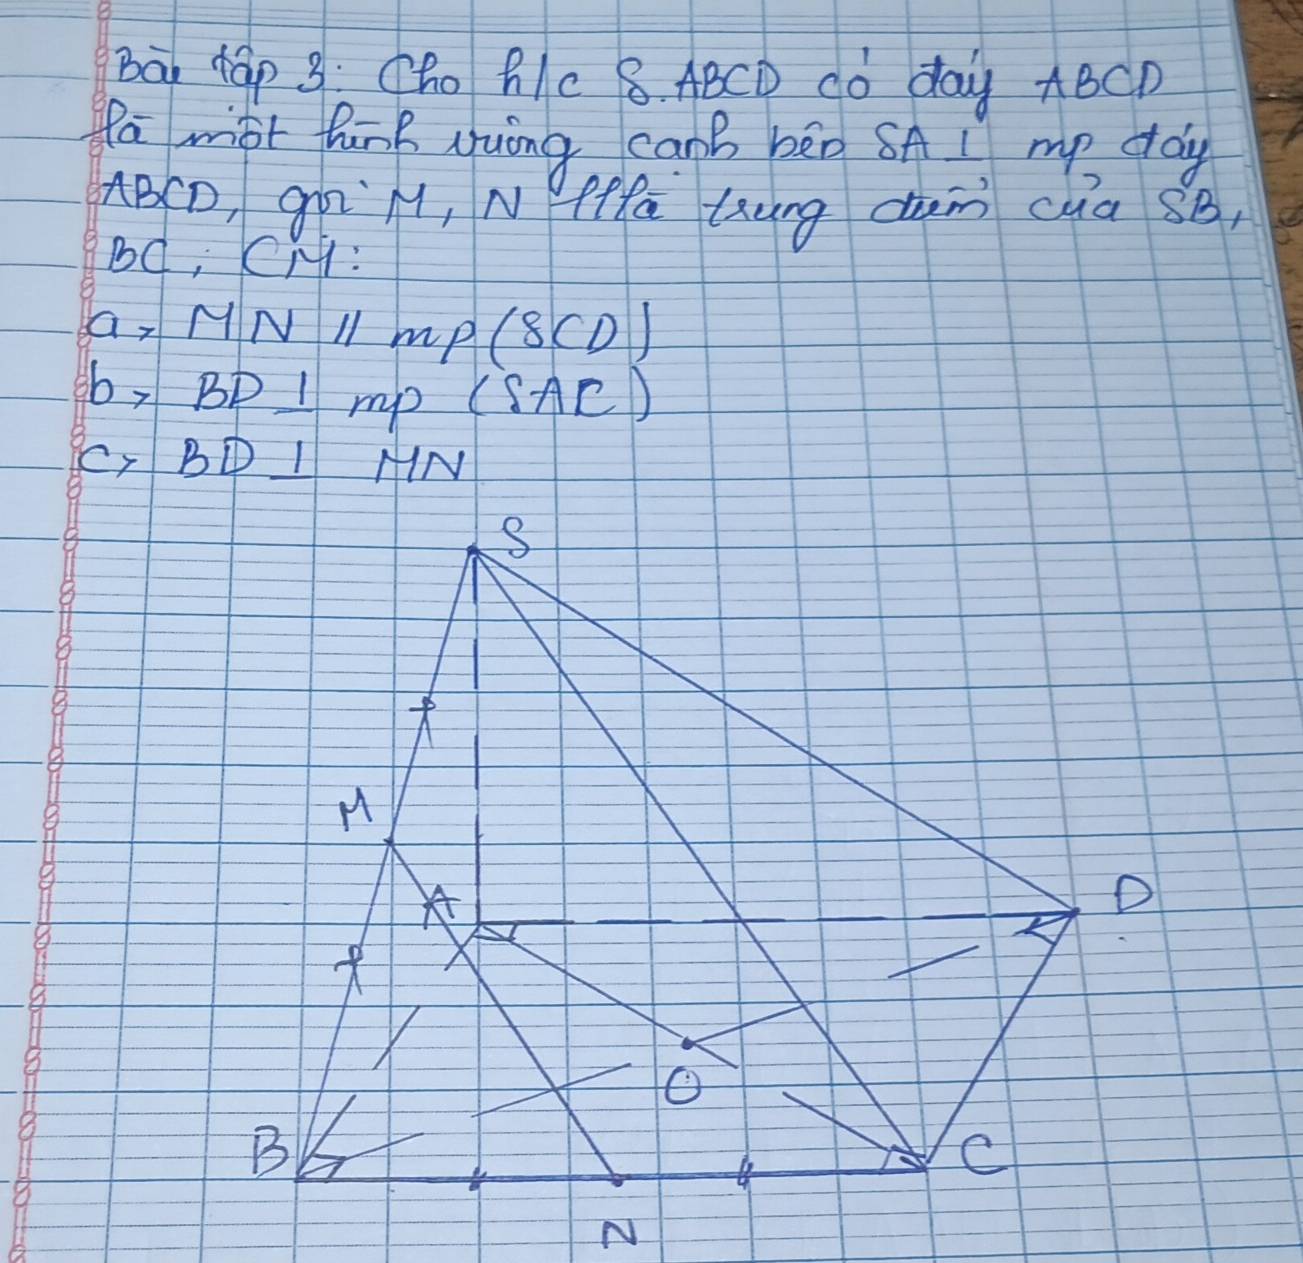 Bài tập 3: Cho h/c S.ABCD có đáy ABCD
là một hình vuông cạnh bên SA ⊥ mp đáy
ABCD, gọi M, N lll là trung điểm của SB,
BC; CM:
a, MN // mp(SCD)
b, BD ⊥ mp (SAC)
c, BD ⊥ MN
S
M
A
D
O
B
C
N